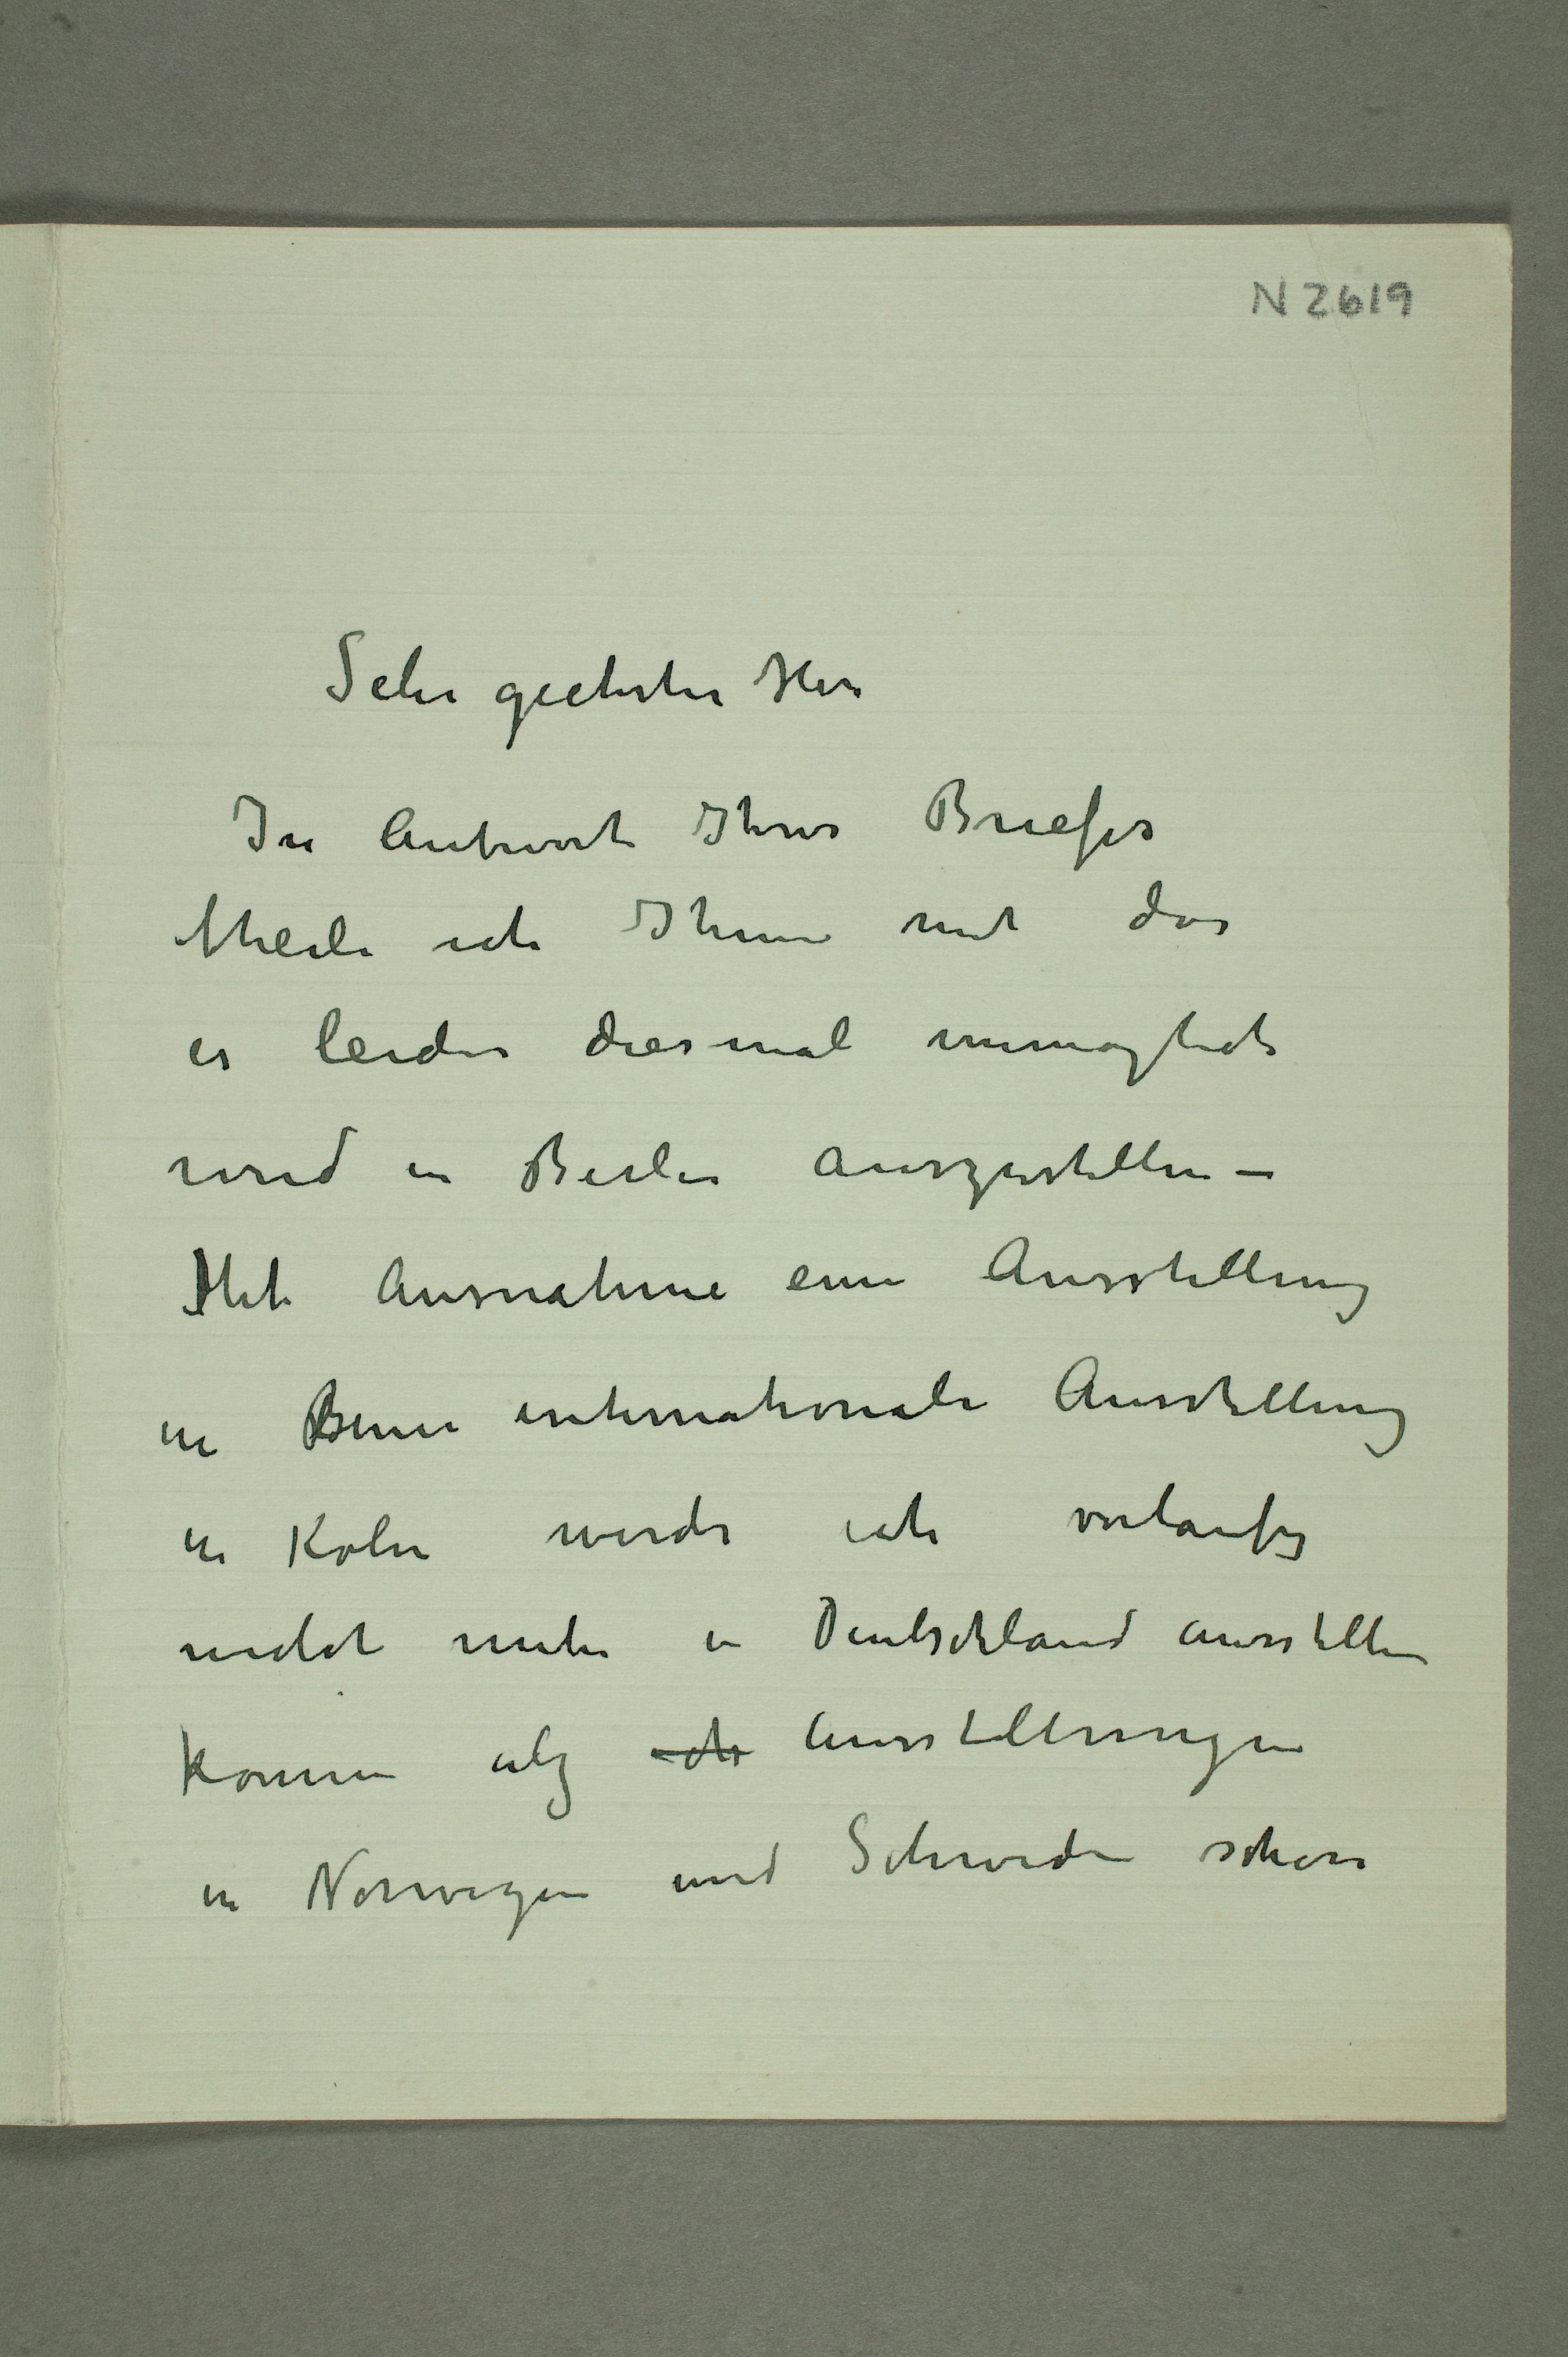 N 2619
Sehr geehrter Herr
In Antwort Ihres Briefes
theile ich Ihnen mit das
es leider diesmal unmöglich
wird in Berlin auszustellen –
Mit Ausnahme einer Ausstellung
in einer internationale Ausstellung
in Koln werde ich vorlaufig
nicht mehr in Deutschland ausstellen
konnen als Ausstellungen
in Norwegen und Schweden schon